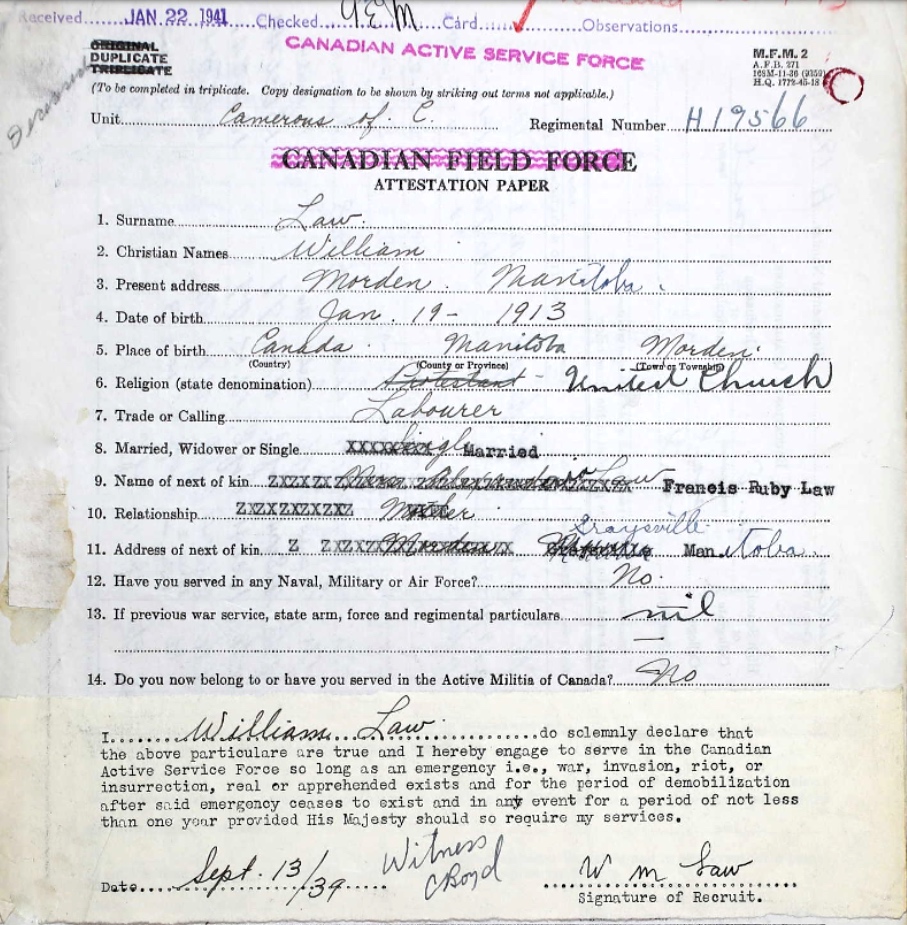 Received......JAN. 22 1941....Checked G.E.M Card..........Observations..........
CANADIAN ACTIVE SERVICE FORCE
ORIGINAL
DUPLICATE
TRIPLICATE
M.F.M. 2
A.F.B. 271
H.Q. 1772-45-18
(To be completed in triplicate. Copy designation to be shown by striking out terms not applicable.)
Unit Camerons of. C. Regimental Number H19566
CANADIAN FIELD FORCE
ATTESTATION PAPER
1. Surname Law.
2. Christian Names William
3. Present address Morden. Manitoba.
4. Date of birth Jan. 19- 1913
5. Place of birth Canada. Manitoba Morden.
(Country) (County or Province) (Town or Township)
6. Religion (state denomination) Protestant - United Church
7. Trade or Calling Labourer
8. Married, Widower or Single Single Married
9. Name of next of kin Law Francis Ruby Law
10. Relationship Mother
Graysville
11. Address of next of kin Morden Manitoba.
12. Have you served in any Naval, Military or Air Force? No.
13. If previous war service, state arm, force and regimental particulars nil
14. Do you now belong to or have you served in the Active Militia of Canada? No
I........William Law..........do solemnly declare that
the above particulare are true and I hereby engage to serve in the Canadian
Active Service Force so long as an emergency i.e., war, invasion, riot, or
insurrection, real or apprehended exists and for the period of demobilization
after said emergency ceases to exist and in any event for a period of not less
than one year provided His Majesty should so require my services.
Date Sept. 13/39 Witness W m Law
C Boyd
Signature of Recruit.